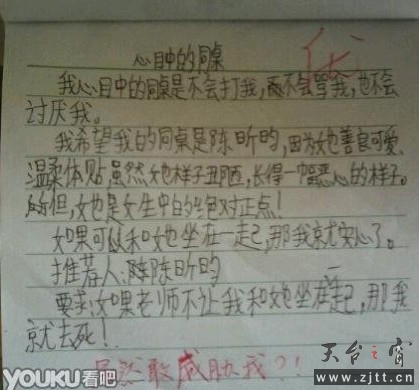 心目中的同桌
优
我心目中的同桌是不会打我,而不会骂我,也不会
讨厌我。
我希望我的同桌是陈昕昀,因为她善良可爱、
温柔体贴,虽然她样子丑陋,长得一幅恶心的样子。
的但,她是女生中的绝对正点!
如果可以和她坐在一走起,那我就安心了。
推荐人:陈昕昀
要求:如果老师不让我和她坐在一起,那我
就去死!
居然敢威胁我?!
YOUKU看吧
天台之窗
www.zjtt.cn